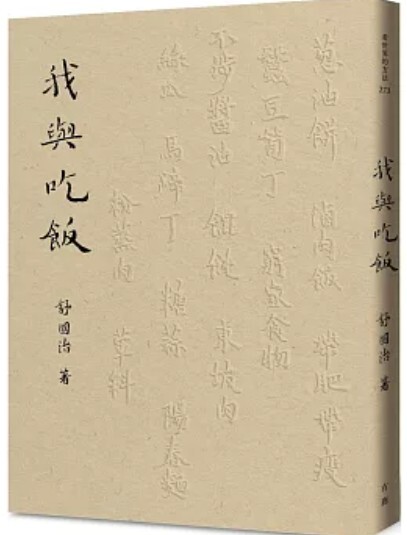 我與吃飯
舒國治 著
蔥油餅 滷肉飯 帶肥帶瘦
蠶豆筍丁 窮家食物
醬油 餛飩 東坡肉
絲瓜 馬蹄丁 糖蒜 陽春麵
粉蒸肉
看世界的方法
我與吃飯
舒國治 著
有鹿